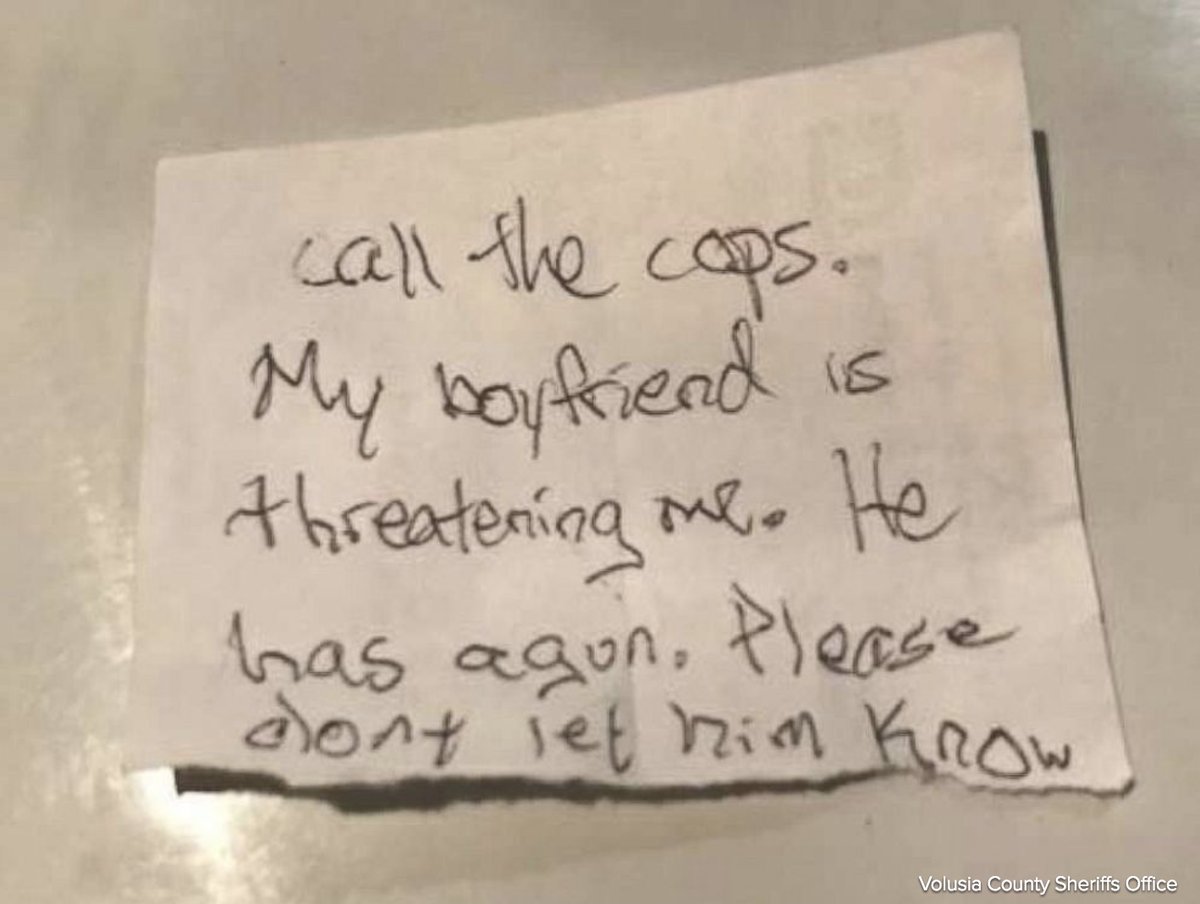 call the cops.
My boyfriend is
threatening me. He
has a gun. Please
dont let him know
Volusia County Sheriffs Office